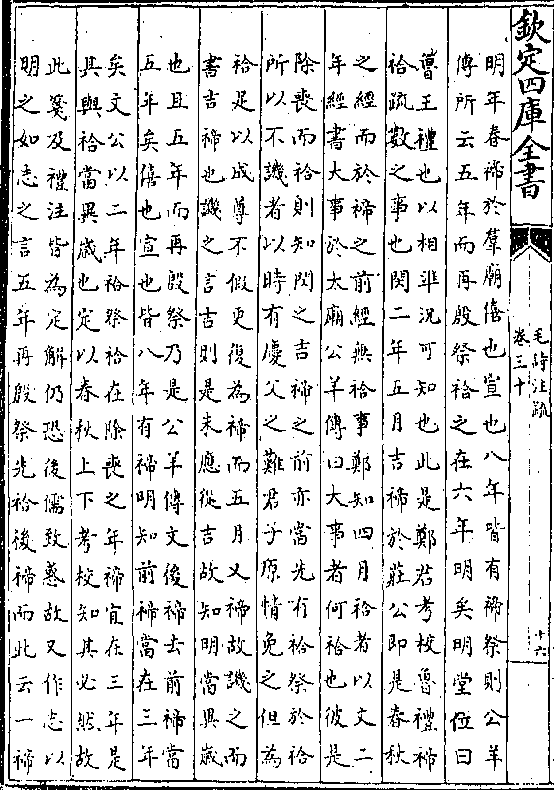 欽定四庫全書
毛詩注疏
卷三十
十六
明年春禘於羣廟僖也宣也八年皆有禘祭則公羊
傳所云五年而再殷祭祫之在六年明矣明堂位曰
魯王禮也以相準況可知也此是鄭君考校魯禮禘
祫疏數之事也閔二年五月吉禘於莊公即是春秋
之經而於禘之前經無祫事鄭知四月祫者以文二
年經書大事於太廟公羊傳曰大事者何祫也彼是
除喪而祫則知閔之吉禘之前亦當先有祫祭於祫
所以不譏者以時有慶父之難君子原情免之但為
祫是以成尊不假更復為禘而五月又禘故譏之而
書吉禘也譏之言吉則是未應從吉故知明當異歲
也且五年而再殷祭乃是公羊傳文後禘去前禘當
五年矣僖也宣也皆八年有禘明知前禘當在三年
矣文公以二年祫祭祫在除喪之年禘宜在三年是
其與祫當異歲也定以春秋上下考校知其必然故
此箋及禮注皆為定解仍恐後儒致惑故又作志以
明之如志之言五年再殷祭先祫後禘而此云一禘